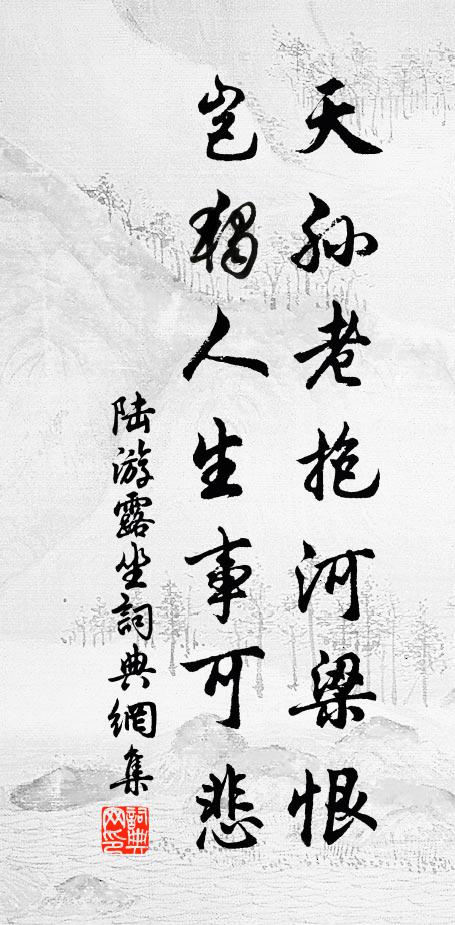 天孙老抱河梁恨
岂独人生事可悲
陆游露坐詞典網集
詞典网印